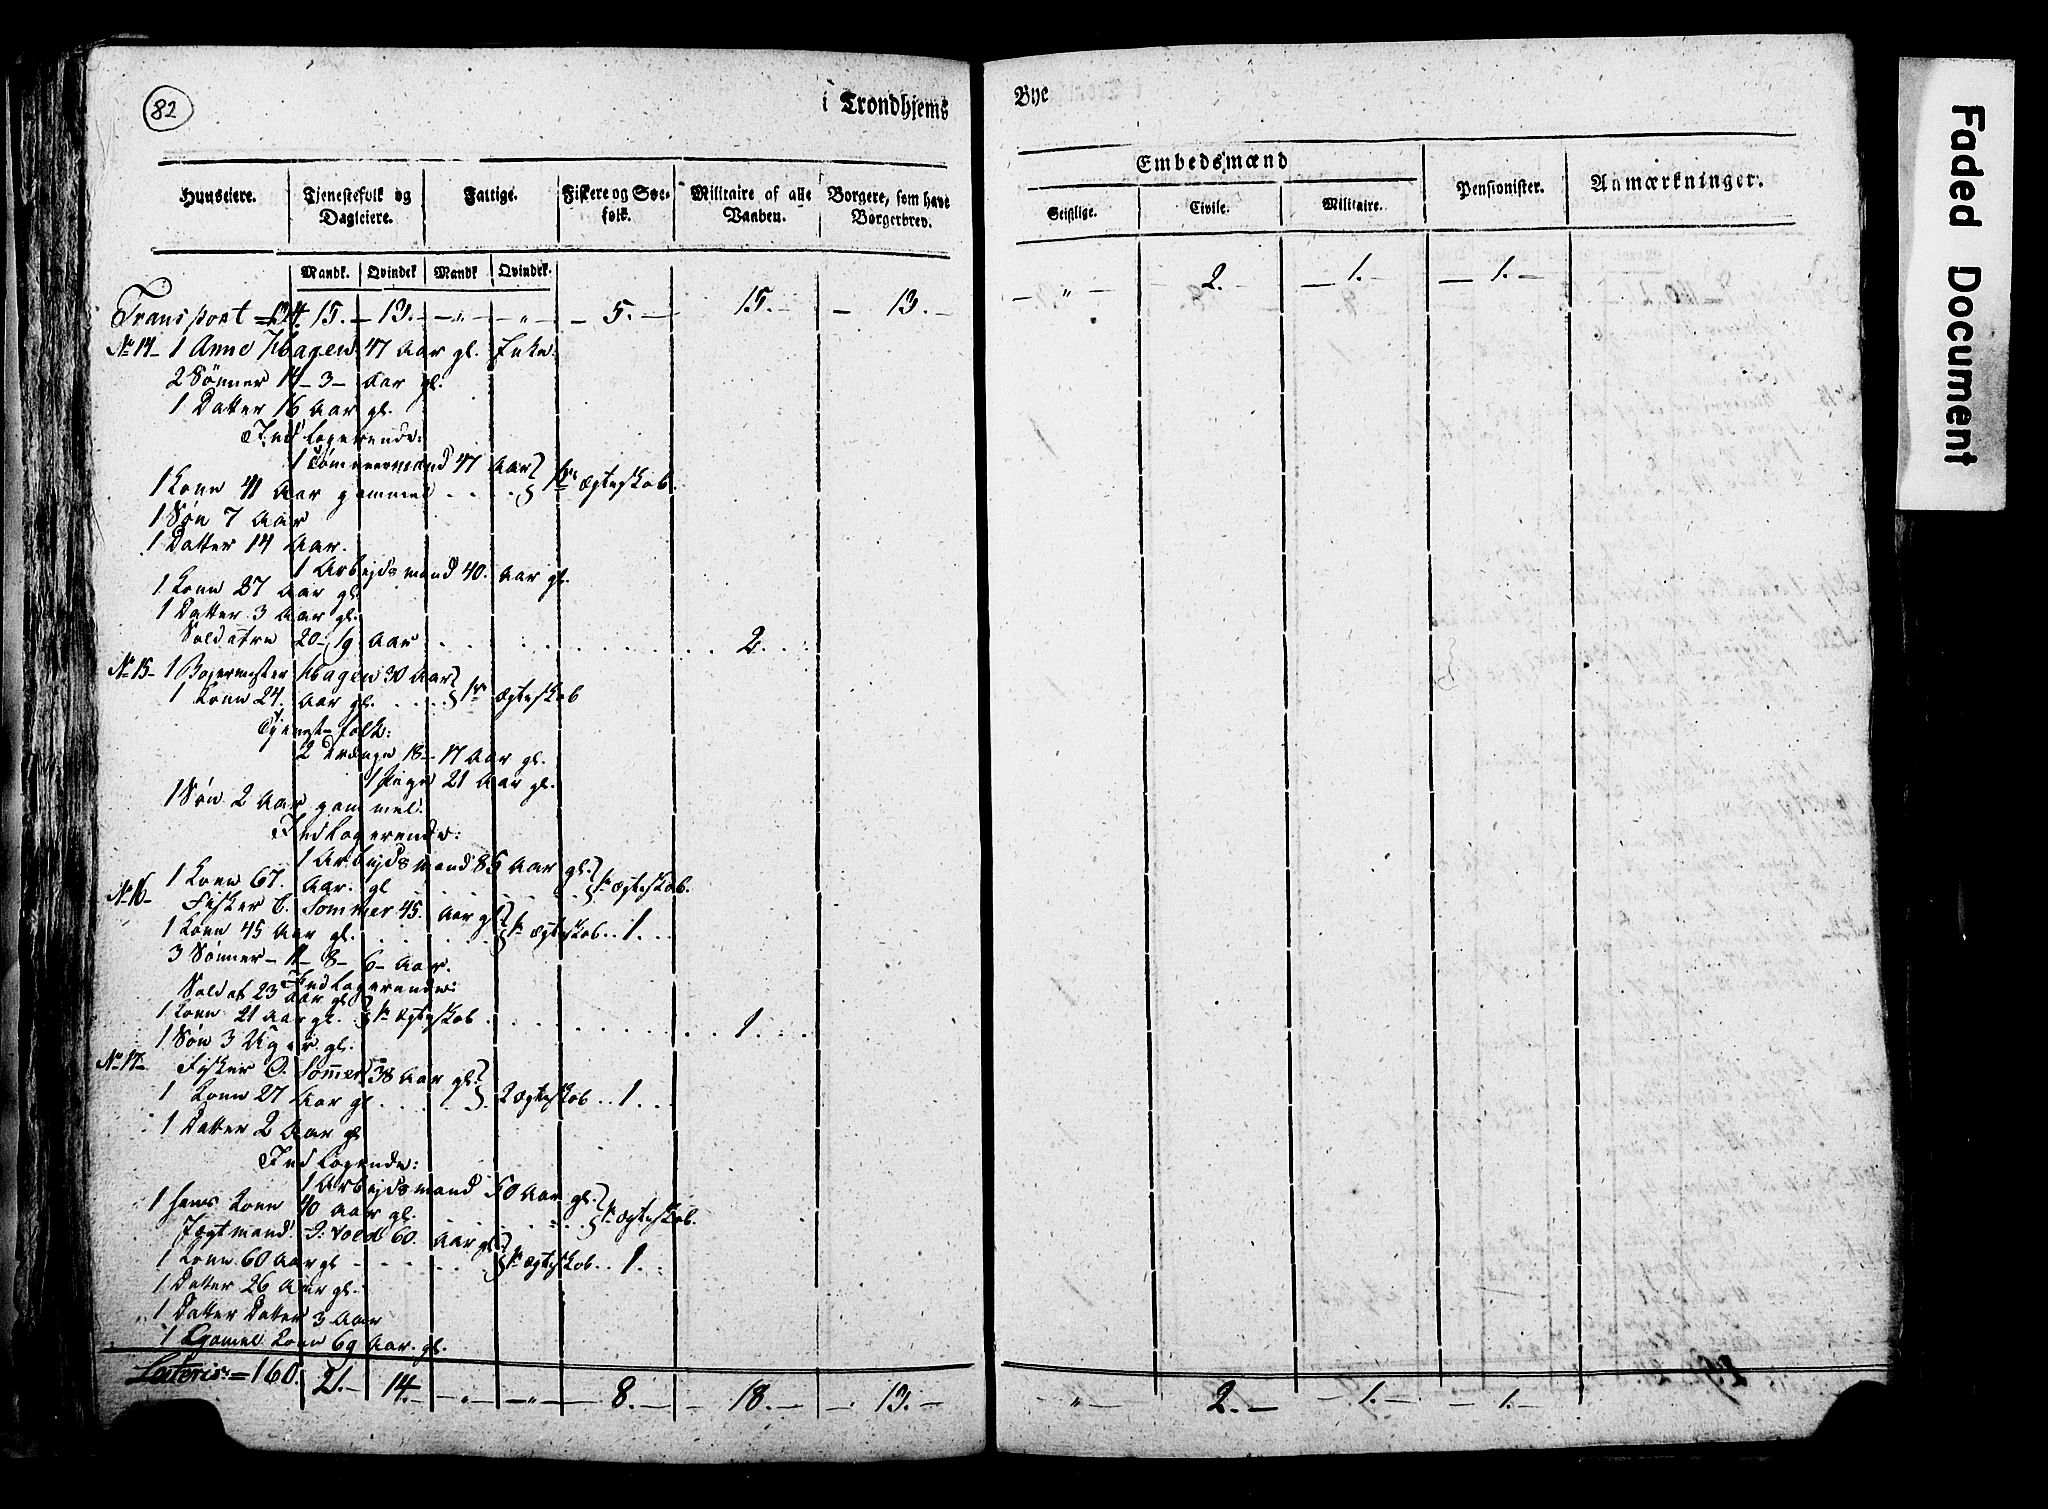 82
i Trondhjems
Bye
Huuseiere.
Tjenestefolk og Dagleiere.
Fattige.
Fiskere og Søefolk.
Militaire af alle Vaaben.
Borgere, som have Borgerbrev.
Embedsmænd
Geistlige.
Civile.
Militaire.
Pensionister.
Anmærkninger.
Mandk. Qvindek Mandk Qvindek.
Transport = 134. 15. 13. — „ — „ — 5. — 15. — 13. — „ — 2. — 1. — 1. —
No 14 1 Anne Hagen 47 Aar gl. Enke.
2 Sønner 14 - 3 - Aar gl.
1 Datter 16 Aar gl.
Indlogerende:
1 Tømmermand 47 Aar
1 Kone 41 Aar gammel . . . 1te Ægteskab.
1 Søn 7 Aar
1 Datter 14 Aar.
1 Arbejdsmand 40. Aar gl.
1 Kone 37 Aar gl.
1 Datter 3 Aar gl.
Soldatre 20 - 19 Aar . . . 2. . .
No 15 1 Bogermester Hagen 30 Aar
1 Kone 24. Aar gl. . . . 1te Ægteskab
Tjenestefolk:
2 Drænge 18 - 17 Aar gl.
1 Pige 21 Aar gl.
1 Søn 2 Aar gammel.
Indlogerende:
1 Arbejdsmand 85 Aar gl.
1 Kone 67. Aar. gl . . . 1te Ægteskab.
No 16 Fisker C. Sommer 45. Aar gl
1 Kone 45 Aar gl. . . . 1te Ægteskab. . 1. . .
3 Sønner - 11 - 8 - 6 - Aar.
Indlogerende:
Soldat 23 Aar gl
1 Kone 21 Aar gl. . 1te Ægteskab . . . 1. . .
1 Søn 3 Uger gl.
No 17 Fisker O. Som̅er 38 Aar gl.
1 Kone 27 Aar gl . . . 2 Ægteskab . . 1. . .
1 Datter 2 Aar gl
Indlogende:
1 Arbejdsmand 50 Aar gl.
1 hans Kone 40 Aar gl. . . . 1te Ægteskab.
Jægtmand. J: Vold 60. Aar gl
1 Kone 60 Aar gl . . . 1te Ægteskab. . 1. . .
1 Datter 26 Aar gl.
1 Datter Datter 3 Aar
1 Gamel Kone 69 Aar. gl.
Lateris: = 160. 21. — 14. — „ — „ — 8. — 18. — 13. — „ — 2. — 1. — 1. —
Faded Document